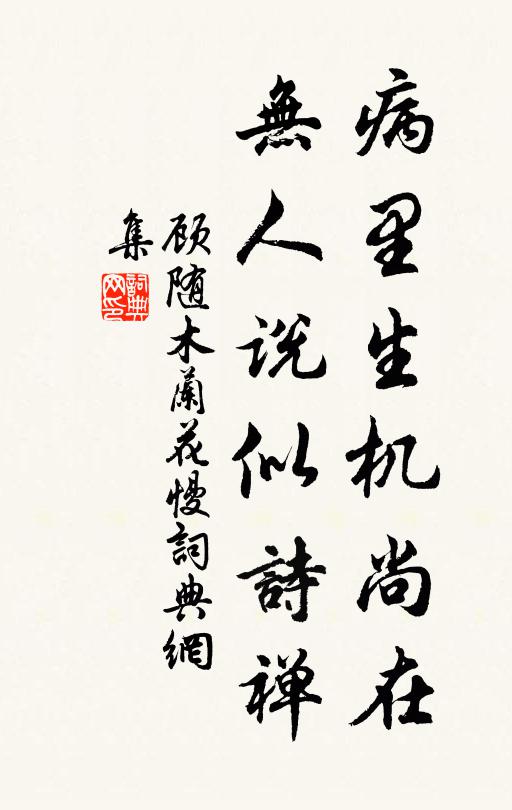 病里生机尚在
無人说似詩禅
顾随木蘭花慢詞典網
集
詞典
网印